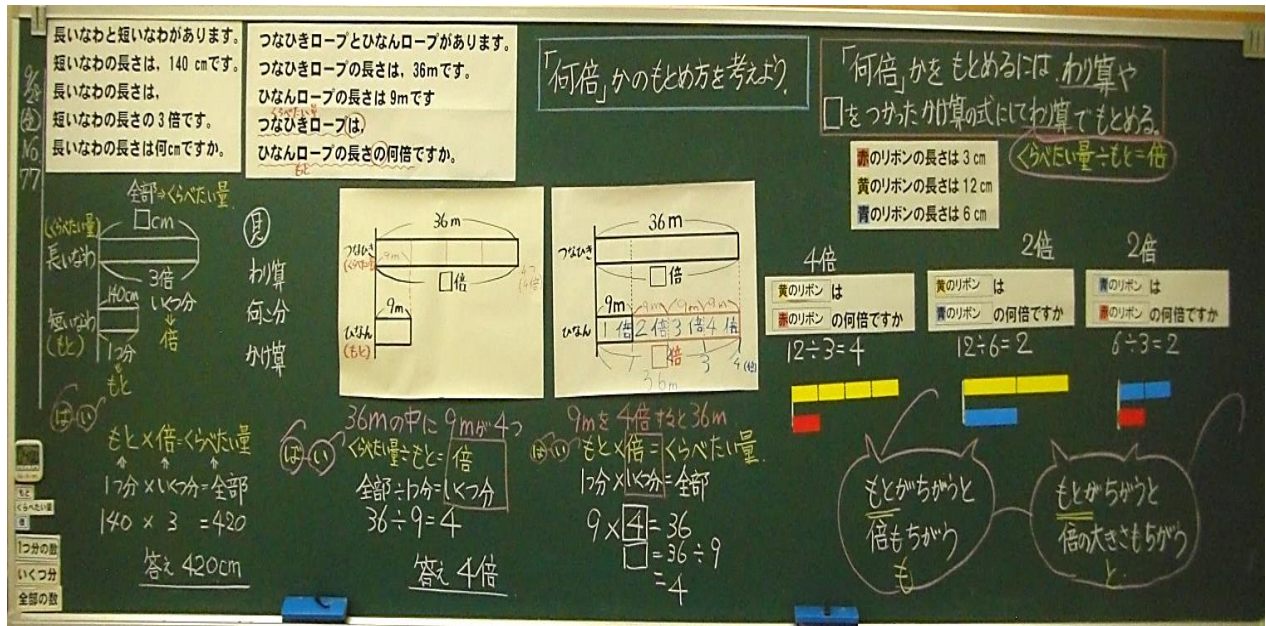 9/28(金)No.77
長いなわと短いなわがあります。
短いなわの長さは，140 cmです。
長いなわの長さは，
短いなわの長さの3倍です。
長いなわの長さは何cmですか。
全部⇒くらべたい量
□cm
(くらべたい量)
長いなわ
3倍
140cm
いくつ分
倍
短いなわ
(もと)
1つ分
もと
はい
もと×倍=くらべたい量
1つ分×いくつ分=全部
140 × 3 =420
答え 420cm
もと
くらべたい量
倍
1つ分の数
いくつ分
全部の数
つなひきロープとひなんロープがあります。
つなひきロープの長さは，36mです。
ひなんロープの長さは9mです
くらべたい量
つなひきロープは，
ひなんロープの長さの何倍ですか。
もと
見
わり算
何こ分
かけ算
36m
つなひき
(くらべたい量)
9m
□倍
9m
ひなん
(もと)
36mの中に9mが4つ
はい
くらべたい量÷もと=倍
全部÷1つ分=いくつ分
36÷9=4
答え 4倍
「何倍」かのもとめ方を考えよう。
36m
つなひき
□倍
9m 9m 9m 9m
ひなん
1倍 2倍 3倍 4倍
□倍
3
36m
9mを4倍すると36m
はい
もと×倍=くらべたい量
1つ分×いくつ分=全部
9×4=36
□=36÷9
=4
「何倍」かをもとめるには、わり算や
□をつかったかけ算の式にしてわり算でもとめる。
くらべたい量÷もと=倍
赤のリボンの長さは 3 cm
黄のリボンの長さは 12 cm
青のリボンの長さは 6 cm
4倍
黄のリボン は
赤のリボン の何倍ですか
12÷3=4
2倍
黄のリボン は
青のリボン の何倍ですか
12÷6=2
2倍
青のリボン は
赤のリボン の何倍ですか
6÷3=2
もとがちがうと
倍もちがう
も
もとがちがうと
倍の大きさもちがう
と